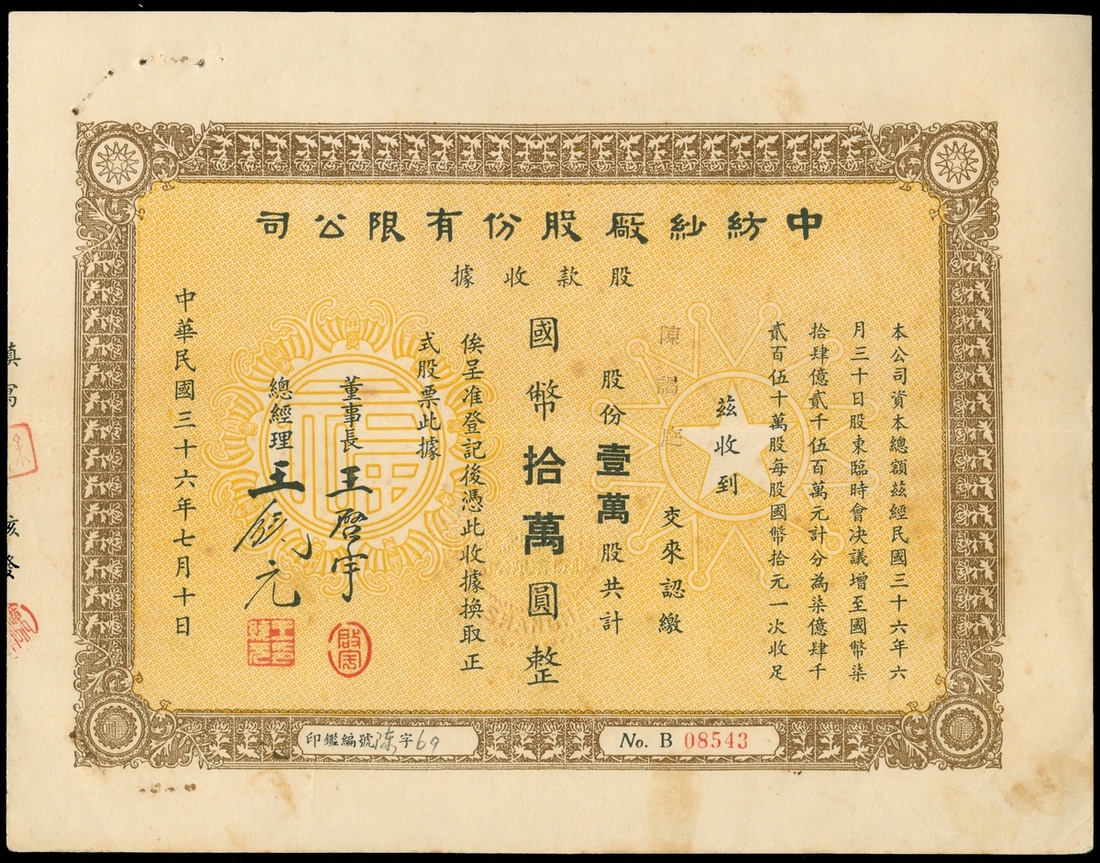 中紡紗廠股份有限公司
股款收據
本公司資本總額茲經民國三十六年六
月三十日股東臨時會決議增至國幣柒
拾肆億貳千伍百萬元計分為柒億肆千
貳百伍十萬股每股國幣拾元一次收足
茲收到
陳 庭 交來認繳
股份壹萬股共計
國幣拾萬圓整
俟呈准登記後憑此收據換取正
式股票此據
董事長 王啓宇
總經理 王 元
中華民國三十六年七月十日
印鑑編號 字69
No. B 08543